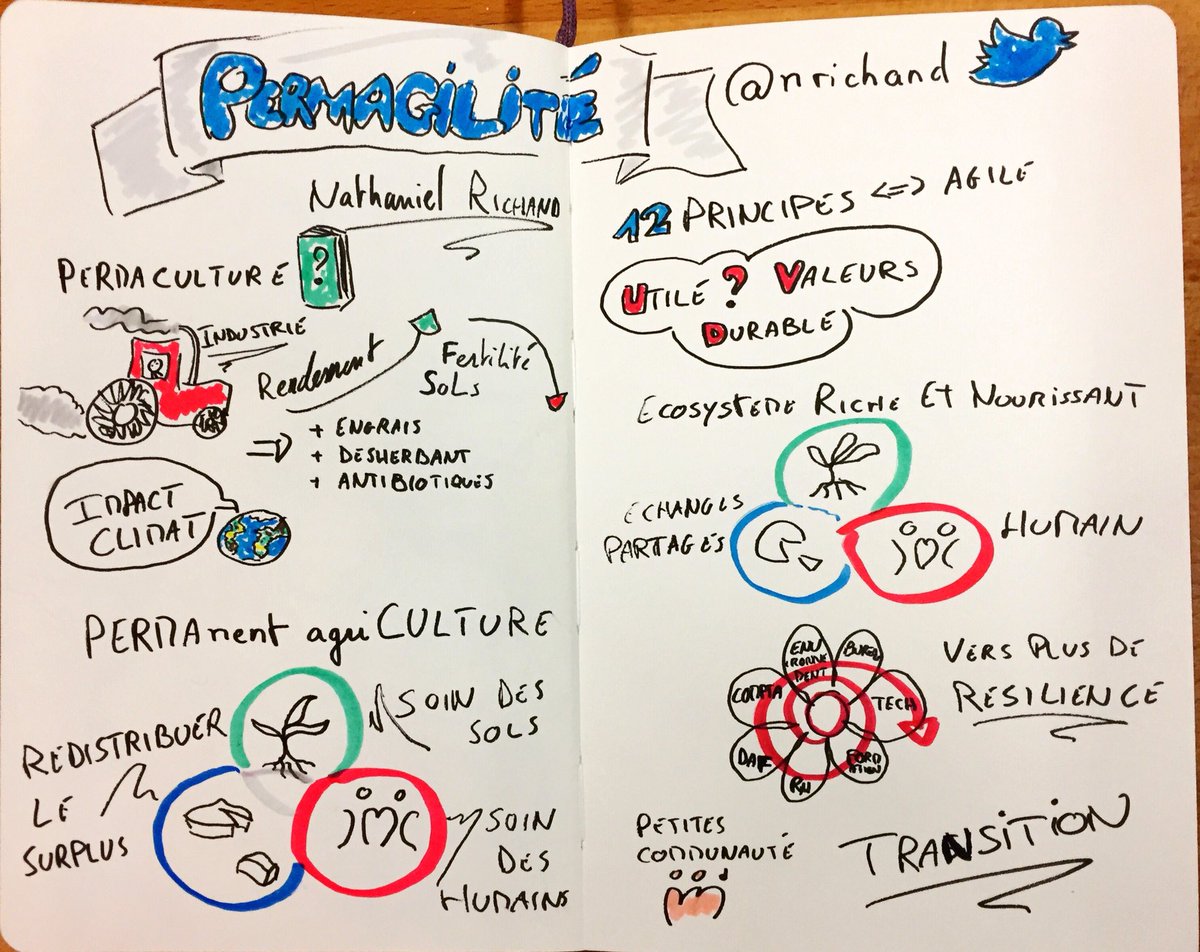 PERMAGILITÉ
Nathaniel RICHAND
PERMACULTURE
?
INDUSTRIE
Rendement
Fertilité
SOLS
+ ENGRAIS
+ DESHERBANT
+ ANTIBIOTIQUES
IMPACT
CLIMAT
PERMAnent agriCULTURE
SOIN DES
SOLS
REDISTRIBUER
LE
SURPLUS
SOIN
DES
HUMAINS
@nrichand
12 PRINCIPES <=> AGILE
UTILE ? VALEURS
DURABLE
ECOSYSTEME RICHE ET NOURISSANT
ECHANGES
PARTAGES
HUMAIN
ENVI
RONNE
MENT
BUREAU
COMPTA
TECH
DAF
RH
FORM
ATION
VERS PLUS DE
RESILIENCE
PETITES
COMMUNAUTÉ
TRANSITION